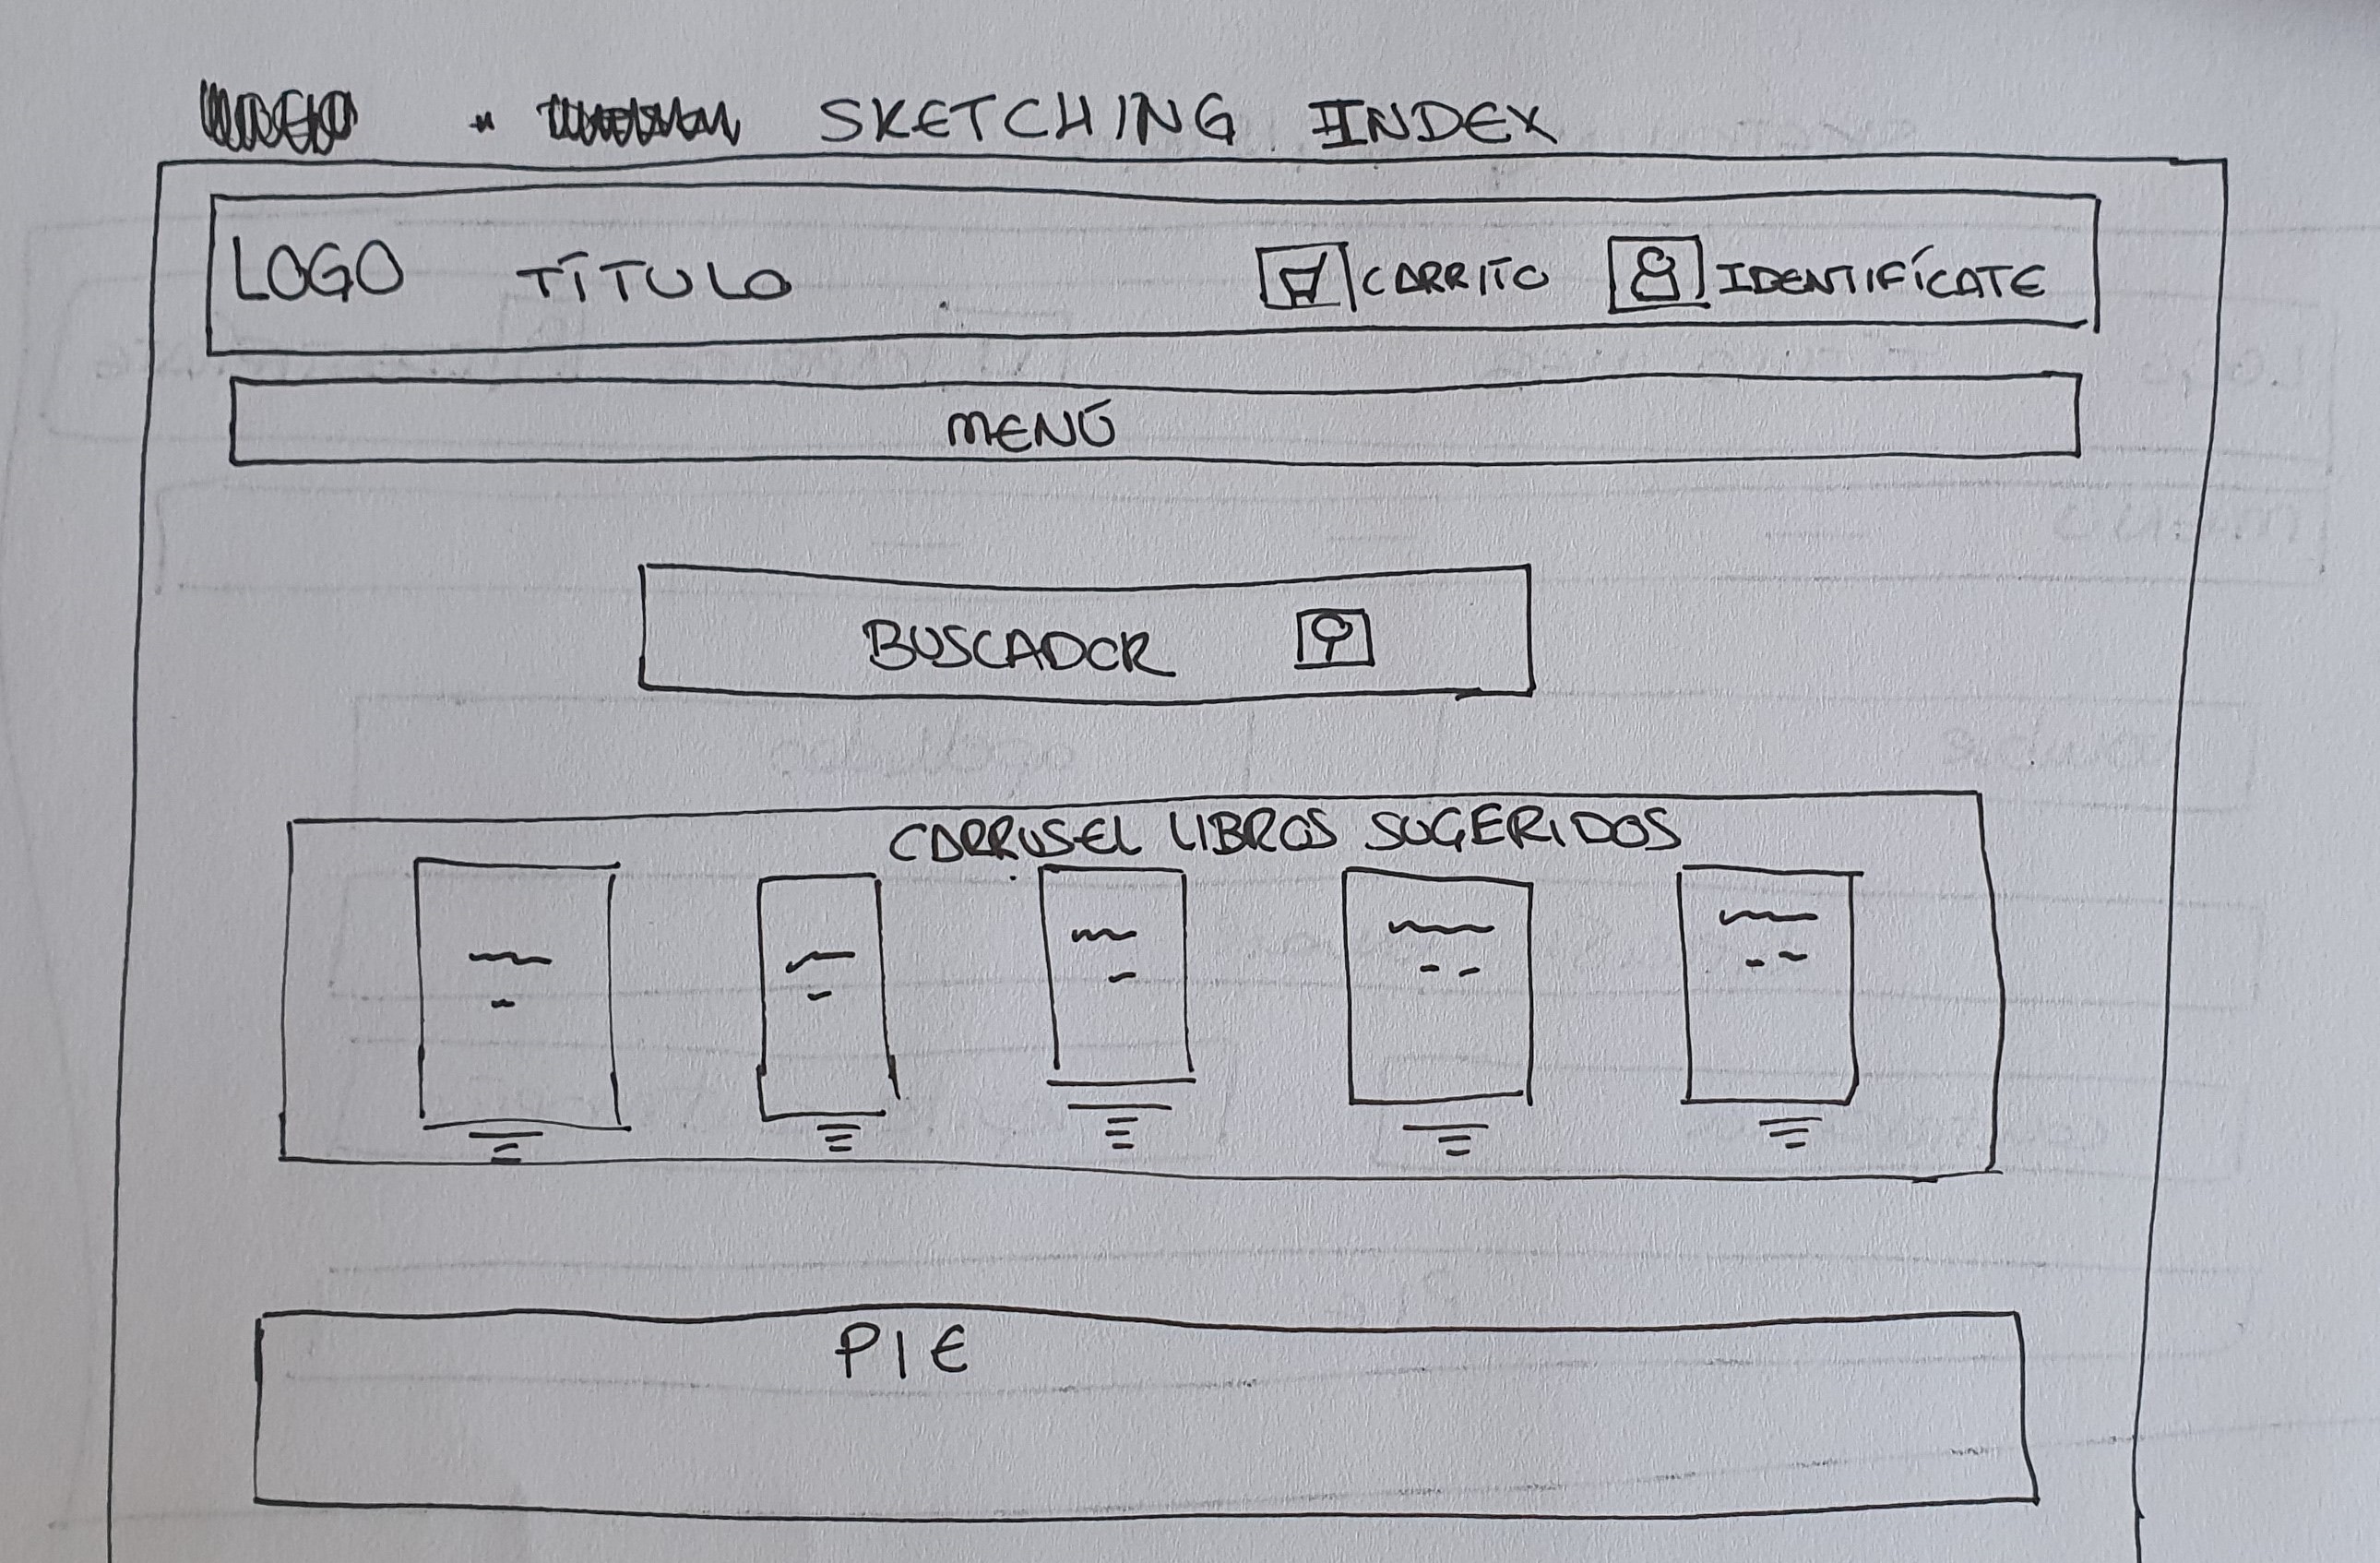 SKETCHING INDEX
LOGO TÍTULO CARRITO IDENTIFÍCATE
MENÚ
BUSCADOR
CARRUSEL LIBROS SUGERIDOS
PIE